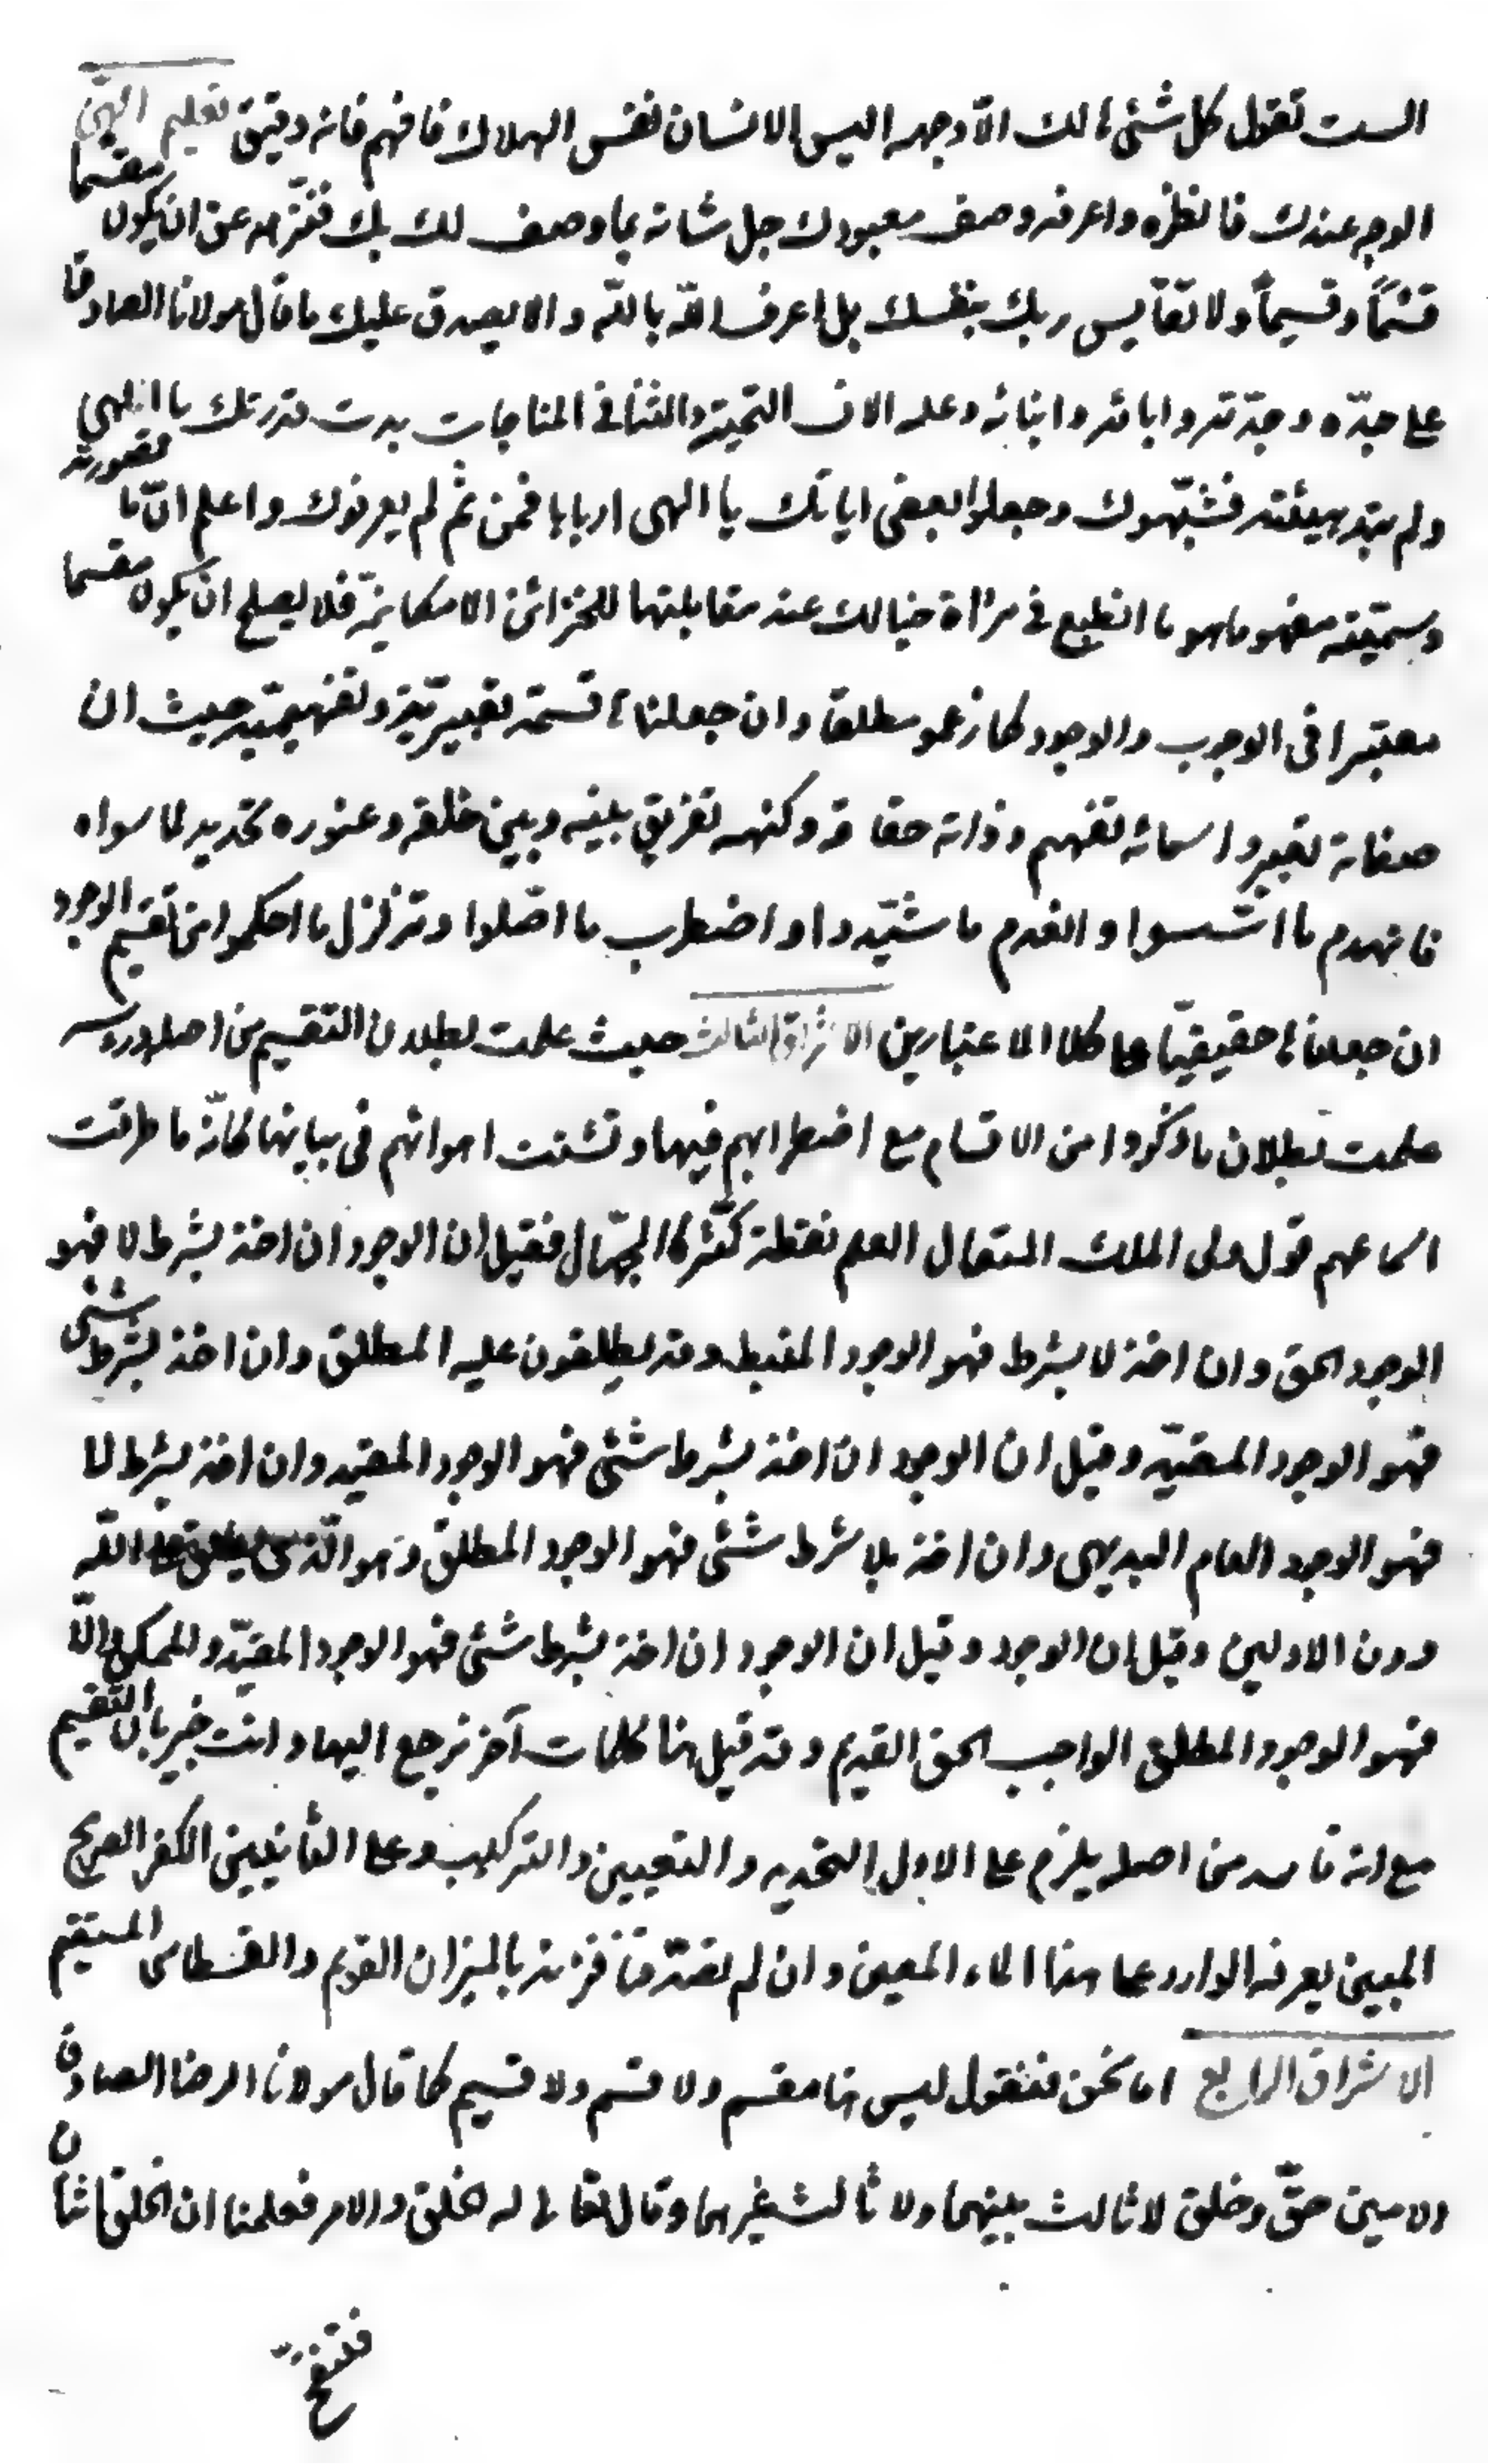 الست تقول كل شئ هالك الّا وجهه اليس الانسان نفس الهلاك فافهم فانه دقيق تعليم الهىّ
الوجه عندك فانظره واعرفه وصف معبودك جل شانه بما وصف لك بك فنزّهه عن ان يكون مقسما
قسماً وقسيماً ولا تقايس ربك بنفسك بل اعرف اللّه باللّه والا يصدق عليك ما قال مولانا الصادق
على جدّه وجدّته وابائه وابنائه وعليه الاف التحية والثنا فى المناجات بدت قدرتك يا الهى
ولم تبد هيئته فشبّهوك وجعلوا بعض اياتك يا الهى اربابا فمن ثم لم يعرفوك واعلم انّ ما تصورته
وسمّيته مفهوما هو ما انطبع فى مرآة خيالك عند مقابلتها للخزائن الامكانيّة فلا يصلح ان يكون مقسما
معتبرا فى الوجوب والوجود كما زعمو مطلقا وان جعلناه قسمة تعبيريّة وتفهيميّة حيث ان
صفاته تعبير واسمائه تفهيم وذاته حقاقه وكنهه تفريق بينه وبين خلقه وغيوره تحديد لما سواه
فانهدم ما اسّسوا وانعدم ما شيّدوا واضطرب ما اصّلوا وتزلزل ما احكموا من تقسيم الوجود
ان جعلناه حقيقيّا على كلا الاعتبارين الاشراق الثالث حيث علمت بطلان التقسيم من اصله وراسه
علمت بطلان ما ذكروا من الاقسام مع اضطرابهم فيها وتشتت اهوائهم فى بيانها كانّه ما طرقت
اسماعهم قول ولى الملك المتعال العلم نقطة كثّرها الجهّال فقيل ان الوجود ان اخذ بشرط لا فهو
الوجود الحق وان اخذ لا بشرط فهو الوجود المنبسط وقد يطلقون عليه المطلق وان اخذ بشرط شئ
فهو الوجود المقيّد وقيل ان الوجود ان اخذ بشرط شئ فهو الوجود المقيد وان اخذ بشرط لا
فهو الوجود العام البديهى وان اخذ بلا شرط شئ فهو الوجود المطلق وهو الّذى يطلق على اللّه
دون الاولين وقيل ان الوجود وقيل ان الوجود ان اخذ بشرط شئ فهو الوجود المقيّد والممكن والّا
فهو الوجود المطلق الواجب الحق القديم وقد قيل هنا كلمات آخر ترجع اليها وانت خبير بان التقسيم
مع انه فاسد من اصله يلزم على الاول التحديد والتعيين والتركيب وعلى الثانيين الكفر الصريح
المبين يعرفه الوارد على هذا الماء المعين وان لم تصدّقنا فزنه بالميزان القويم والقسطاس المستقيم
الاشراق الرابع اما نحن فنقول ليس هنا مقسم ولا قسم ولا قسيم كما قال مولانا الرضا الصادق
الامين حقّ وخلق لا ثالث بينهما ولا ثالث غيرهما وقال تعالى له الخلق والامر فعلمنا ان الخلق اثنان